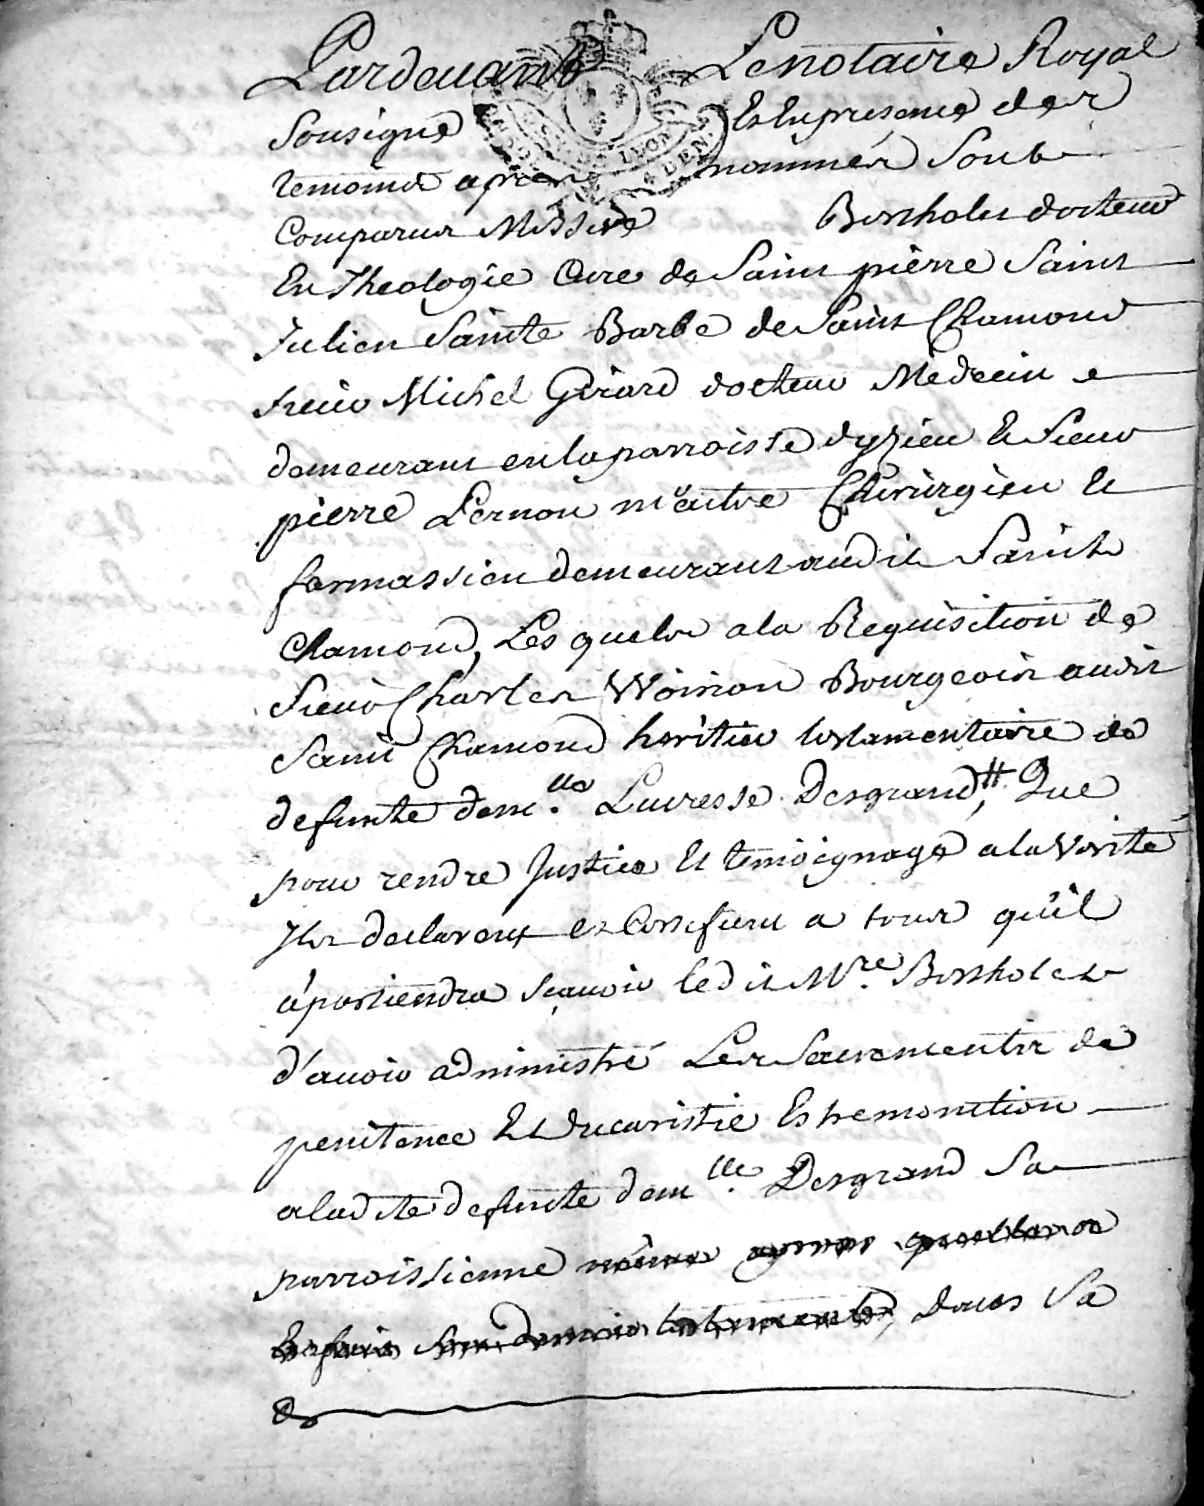 Pardevant Le notaire Royal
Sousigné Et En presence des
temoins apres nommés Sont
Comparus Messire Bertholet docteur
En Theologie Curé de Saint pierre Saint
Julien Sainte Barbe de Saint Chamond
sieur Michel Girard docteur Médecin
demeurant en la parroisse dyzieu Et Sieur
pierre Pernon maitre Chirurgien Et
formassien demeurant audit Saint
Chamond, Les quels a la Requisition de
Sieur Charles Woirion Bourgeois audit
Saint Chamond heritier testamentaire de
defunte dem.lle Lucresse Desgrand,# Que
pour rendre Justice Et temoignage a la verité
Ils declarent et Certifient a tous qu'il
apartiendra sçavoir ledit Mre. Bertholet
d'avoir administré Les Sacrements de
penitence Et Eucaristie Extremonction
a ladite defunte dem.lle Desgrand Sa
parroissienne même apres quelle
Et fait Son dernier testament, dans Sa
de